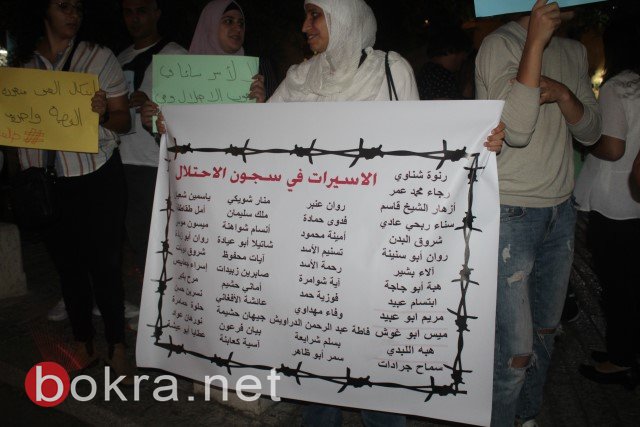 الاسيرات في سجون الاحتلال
رنوة شناوي
رجاء محمد عمر
أزهار الشيخ قاسم
سناء ربحي عادي
شروق البدن
روان أبو ستينة
آلاء بشير
هبة أبو جاجة
ابتسام عبيد
مريم ابو عبيد
ميس ابو غوش
هبة اللبدي
سماح جرادات
روان عنبر
فدوى حمادة
أمينة محمود
تسنيم الأسد
رحمة الأسد
آية شوامرة
فوزية حمد
وفاء مهداوي
فاطة عبد الرحمن الدراويش
بسلم شرايعة
سمر أبو ظاهر
منار شويكي
ملك سليمان
أنسام شواهنة
شاتيلا أبو عيادة
آيات محفوظ
صابرين زبيدات
أماني حشيم
عائشة الأفغاني
جيهان حشيمة
بيان فرعون
آسية كعابنة
ياسمين
أمل طقاطقة
ميسون
روان أبو
شروق
إسراء جعابيص
مرح
نسرين حسن
حلوة حمامرة
نورهان عواد
عطايا أبو
bokra.net